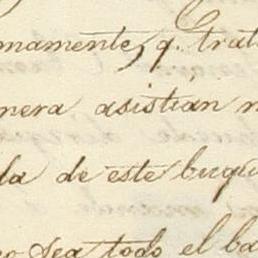 mamente, q. trat
nera asistian
da de este buqu
sea todo el ba